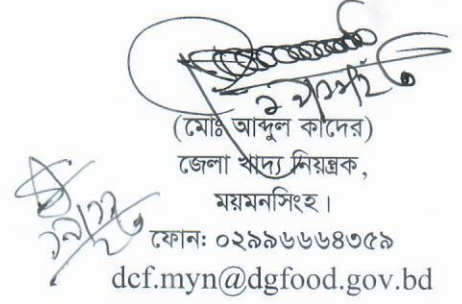 (মোঃ আব্দুল কাদের)
জেলা খাদ্য নিয়ন্ত্রক,
ময়মনসিংহ।
ফোন: ০২৯৯৬৬৬৪৩৫৯
dcf.myn@dgfood.gov.bd